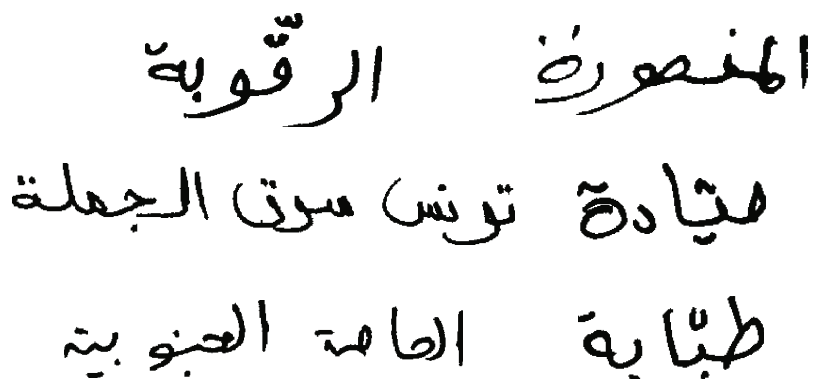 المنصورة الرقّوبة
صيّادة تونس سوق الجملة
طبّابة الحامة الجنوبية